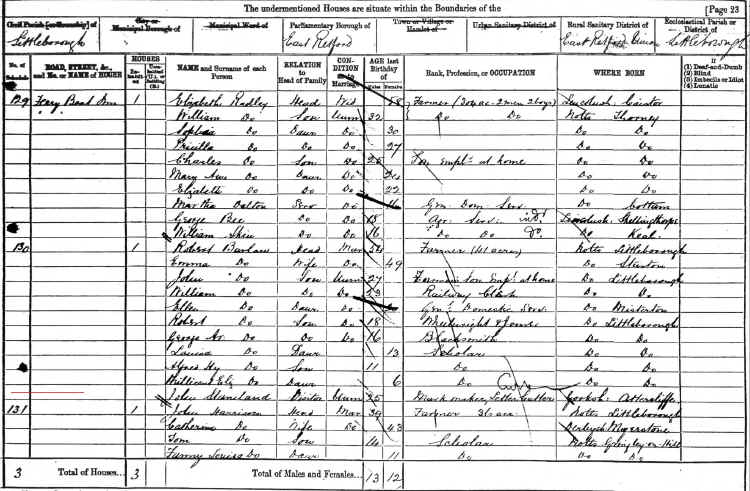 The undermentioned Houses are situate within the Boundaries of the [Page 23
Civil Parish [or Township] of Littleborough
City or Municipal Borough of
Municipal Ward of
Parliamentary Borough of East Retford
Town or Village or Hamlet of
Urban Sanitary District of
Rural Sanitary District of East Retford Union
Ecclesiastical Parish or District of Littleborough
No. of Schedule ROAD, STREET, &c., and No. or NAME of HOUSE HOUSES NAME and Surname of each Person RELATION to Head of Family CONDITION as to Marriage AGE last Birthday of Rank, Profession, or OCCUPATION WHERE BORN If (1) Deaf-and-Dumb (2) Blind (3) Imbecile or Idiot (4) Lunatic
129 Ferry Boat Inn 1 Elizabeth Radley Head Wid 58 Farmer Lincolnsh. Caistor
William Do Son Unm 32 Do Do Notts Thorney
Sophia Do Daur Do 30 Do Do
Priscilla Do Do Do 27 Do Do
Charles Do Son Do 25 Son Empld at home Do Do
Mary Ann Do Daur Do Do Do
Elizabeth Do Do Do 22 Do Do
Martha Dalton Serv Do Gen. Dom. Serv. Do Cottam
George Bee Do Do 13 Agr. Serv. ind. Lincolnsh. Skellingthorpe
William Do Do 16 Do Do Do. Do
130 1 Robert Barlow Head Mar Farmer (41 acres) Notts Littleborough
Emma Do Wife Do 49 Do Sturton
John Do Son Unm 27 Farmer's Son Empd at home Do Littleborough
William Do Do Do 23 Railway Clerk Do Do
Ellen Do Daur Do Genl Domestic Serv. Do Misterton
Robert Do Son Do 18 Wheelwright & Joiner Do Littleborough
George Do Do Do 16 Blacksmith Do Do
Louisa Do Daur 13 Scholar Do Do
Hy Do Son 11 Do Do Do
Millicent Eliz Do Daur 6 Do Do Do
John Staniland Visitor Unm 25 Mark maker, Letter Cutter Yorksh. Attercliffe
131 1 John Harrison Head Mar 39 Farmer Notts Littleborough
Catherine Do Wife Do 43 Derbysh
Tom Do Son 14 Scholar Notts Gringley on Hill
Fanny Louisa Do Daur 11 Do Do Do
3 Total of Houses... 3 Total of Males and Females... 13 12